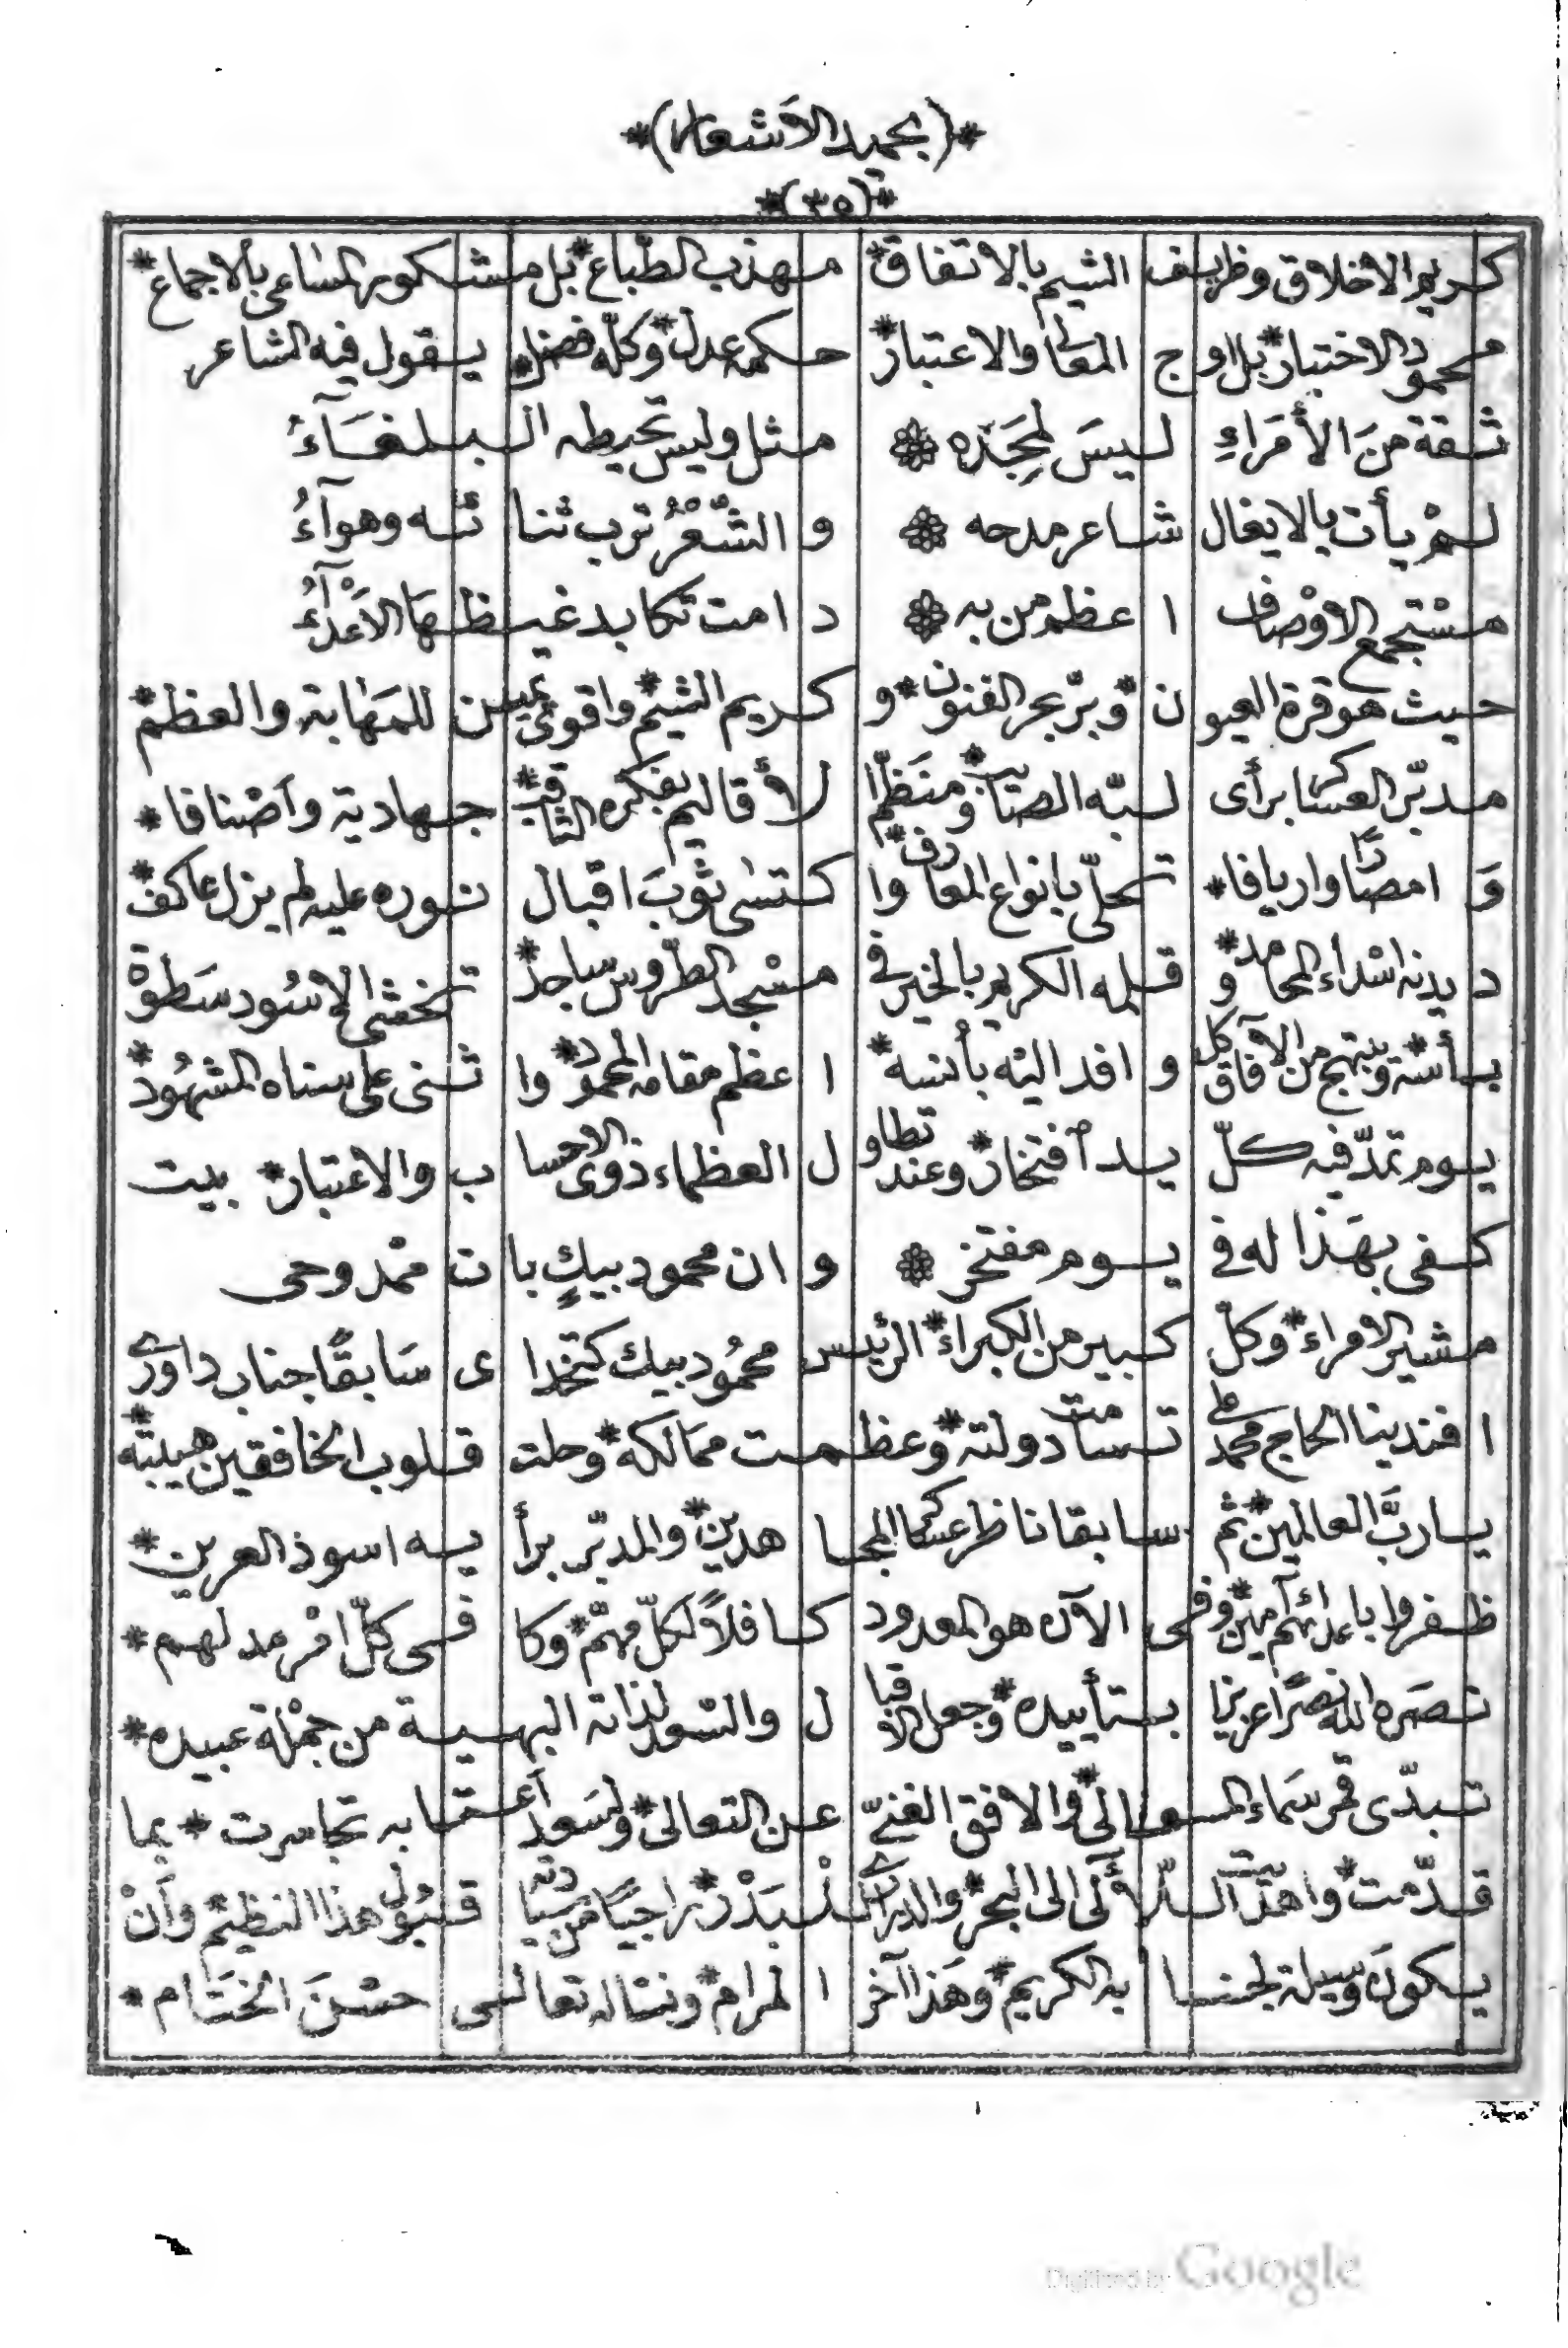 *(بحميد الأشعار)*
*(٣٥)*
كريم الاخلاق وظريف الشيم بالاتفاق * مهذب الطباع * بل مشكور المساعى بالاجماع *
محمود الاختبار * بل اوج المعالى والاعتبار * حكمه عدل * وكلّه فضل * يقول فيه الشاعر
ثقة منَ الأمَراءِ ليسَ لمجَدّه مثل وليس تحيطه البلغَآءُ
لمْ يأت بالايغال شاعر مدحه والشّعْرُ ترب ثنائه وهوآءُ
مسْتجمع الاوْصاف اعظم من به دامت تكابد غيظهَا الاعْدآءُ
حيث هو قرة العيون * وبرّ بحر الفنون * وكريم الشيم * واقوى يمين للمَهابة والعظم *
مدبّر العساكر برأى لبّه الصائب * ومنَظّم الأقاليم بفكره الثاقب * جهادية واصْنافا *
وَامصارًا واريافا * تحلّى بانواع المعارف * واكتسٰى ثوبَ اقبال نوره عليه لم يزل عاكف *
ديدنه اسْداء المحامد * وقلمه الكريم بالخير فى مسْجد الطرُوس ساجد * تخشى الاسُود سَطوة
بأسه * ويبتهج من الآفاق كل وافد اليْه بأنسه * اعظم مقامه المحمود * واثنى على سناه المشهُود *
يوم تمدّ فيه كلّ يد افتخار * وعند تطاول العظماء ذوى الاحساب والاعتبار * بيت
كفى بهَذا له فى يوم مفتخر وان محمود بيكٍ بات ممْدوحى
مشير الامراء * وكلّ كبير من الكبراء * الرئيس محمُود بيك كتخداى سَابقًا جناب داورى
افندينا الحاج محمد على تسامت دولته * وعظمت ممالكه * وحلت قلوب الخافقين هيبته *
يا ربَّ العالمين * ثم سابقا ناظر عساكر المجاهدين * والمدبّر برأيه اسود العرين *
ظفروا باعدائهم آمين * وفى الآن هو المعدود كافلاً لكلّ مهمّ * وكافى كلّ امْر مدلهم *
نصَره الله نصرًا عزيزا بتأييده * وجعل الاقبال والسْعد لذاته البهية من جمْلة عبيده *
تبدّى قمر سَماء المعالى * والافق الغنىّ عن التعالى * ولسَعد أعتابه تجاسرت * بما
قدّمت * واهديت اللّآلى الى البحر * والدرارى للبَدْر * راجيًا من سيادته قبُول هذا النظيم * وأنْ
يكون وسيلة لجنابه الكريم * وهَذا آخر المرام * ونسأله تعالى حسْنَ الختَام *